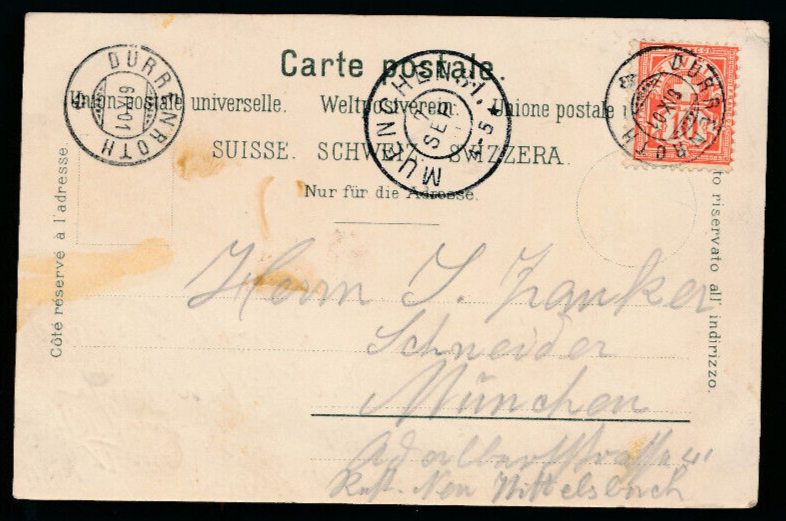 Carte postale.
Union postale universelle. Weltpostverein. Unione postale
SUISSE. SCHWEIZ. SVIZZERA.
Nur für die Adresse.
Côté réservé à l'adresse.
to riservato all' indirizzo.
DÜRRENROTH
6 IX 01
MUENCHEN 31.
SEP
4-5
DÜRRENROTH
6 IX 01
10
Herrn J. Zanker
Schneider
München
Adalbertstrasse 41
Rest. Neu Wittelsbach